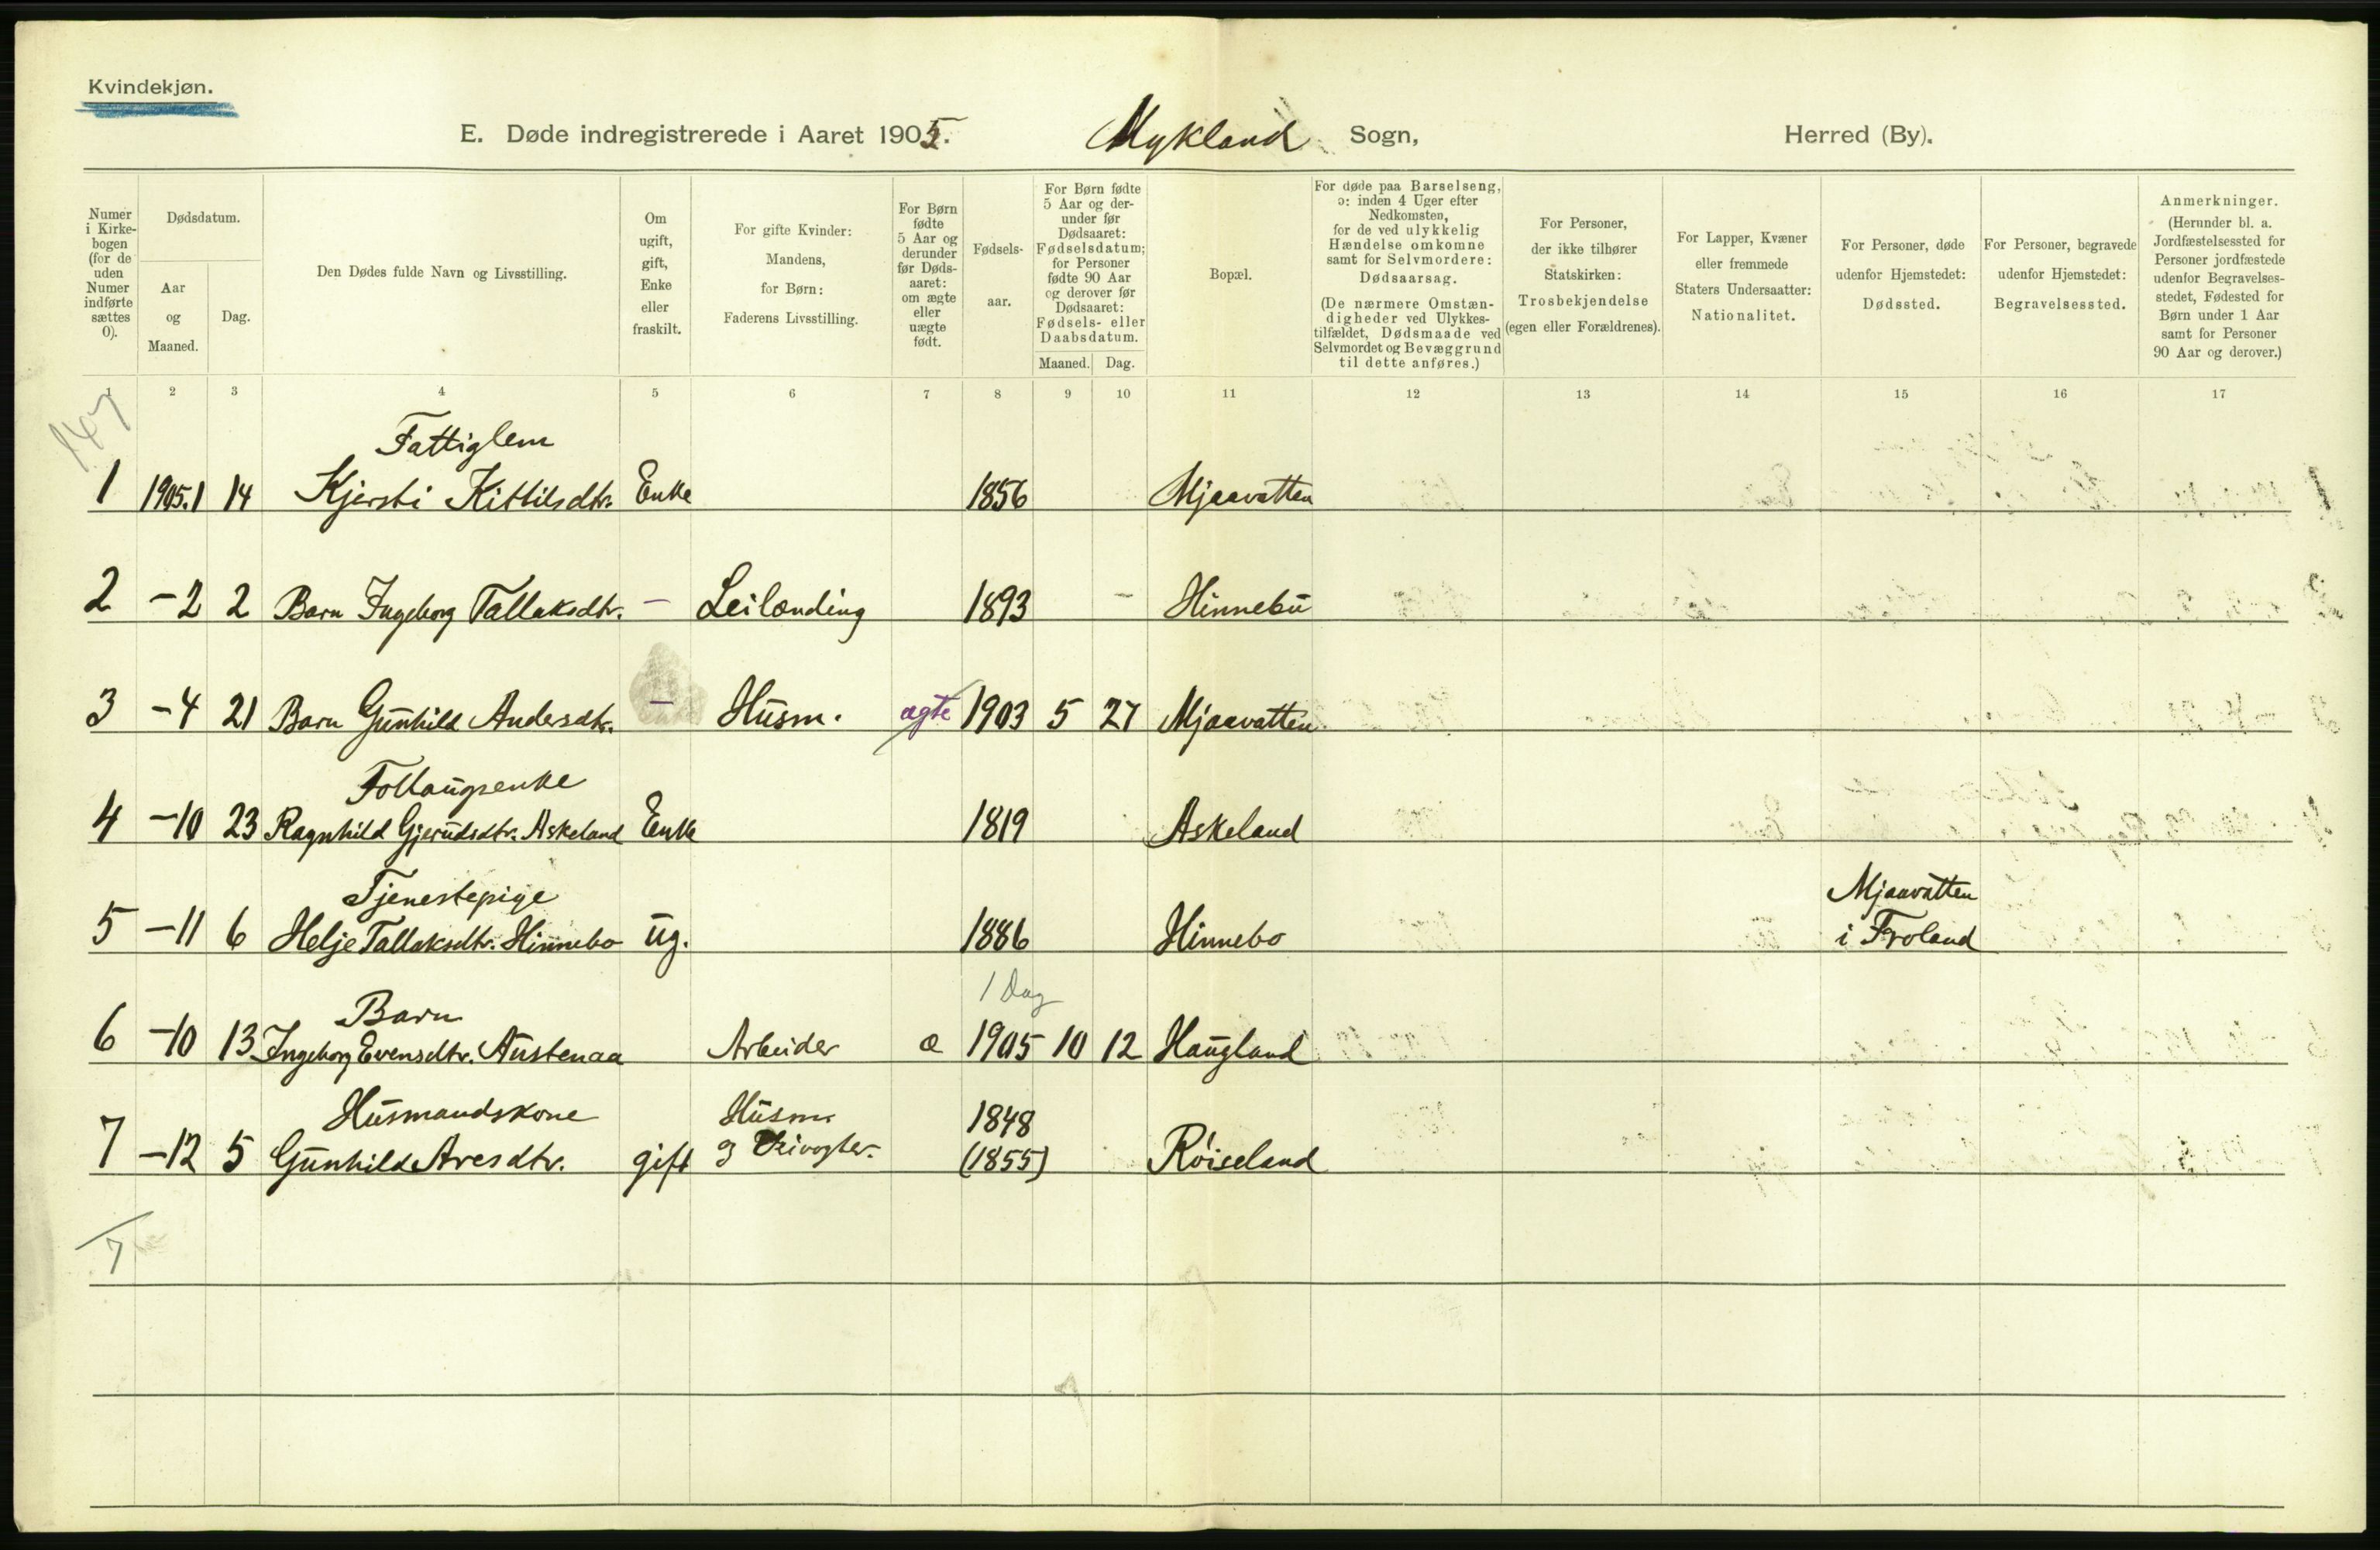 Kvindekjøn.
E. Døde indregistrerede i Aaret 1905. Mykland Sogn, Herred (By).
Numer i Kirke-bogen (for de uden Numer indførte sættes 0).
Dødsdatum.
Aar og Maaned.
Dag.
Den Dødes fulde Navn og Livsstilling.
Om ugift, gift, Enke eller fraskilt.
For gifte Kvinder: Mandens, for Børn: Faderens Livsstilling.
For Børn fødte 5 Aar og derunder før Døds-aaret: om ægte eller uægte født.
Fødsels-aar.
For Børn fødte 5 Aar og der-under før Dødsaaret: Fødselsdatum; for Personer fødte 90 Aar og derover før Dødsaaret: Fødsels- eller Daabsdatum.
Maaned. Dag.
Bopæl.
For døde paa Barselseng, ɔ: inden 4 Uger efter Nedkomsten, for de ved ulykkelig Hændelse omkomne samt for Selvmordere: Dødsaarsag.
(De nærmere Omstæn-digheder ved Ulykkes-tilfældet, Dødsmaade ved Selvmordet og Bevæggrund til dette anføres.)
For Personer, der ikke tilhører Statskirken: Trosbekjendelse (egen eller Forældrenes).
For Lapper, Kvæner eller fremmede Staters Undersaatter: Nationalitet.
For Personer, døde udenfor Hjemstedet: Dødssted.
For Personer, begravede udenfor Hjemstedet: Begravelsessted.
Anmerkninger.
(Herunder bl. a. Jordfæstelsessted for Personer jordfæstede udenfor Begravelses-stedet, Fødested for Børn under 1 Aar samt for Personer 90 Aar og derover.)
1 2 3 4 5 6 7 8 9 10 11 12 13 14 15 16 17
147
Fattiglem
1 1905.1 14 Kjersti Kittilsdtr. Enke 1856 Mjaavatten
2 -2 2 Barn Ingeborg Tallaksdtr. - Leilænding 1893 - Hinnebu
3 -4 21 Barn Gunhild Andersdtr. - Husm. ægte 1903 5 27 Mjaavatten
Follaugsenke
4 -10 23 Ragnhild Gjerudsdtr. Askeland Enke 1819 Askeland
Tjenestepige Mjaavatten
5 -11 6 Helje Tallaksdtr. Hinnebo ug. 1886 Hinnebo i Froland
1 Dag
Barn
6 -10 13 Ingeborg Evensdtr. Austenaa Arbeider æ 1905 10 12 Haugland
Husmandskone Husm. 1848
7 -12 5 Gunhild Aresdtr. gift og (1855) Røiseland
7